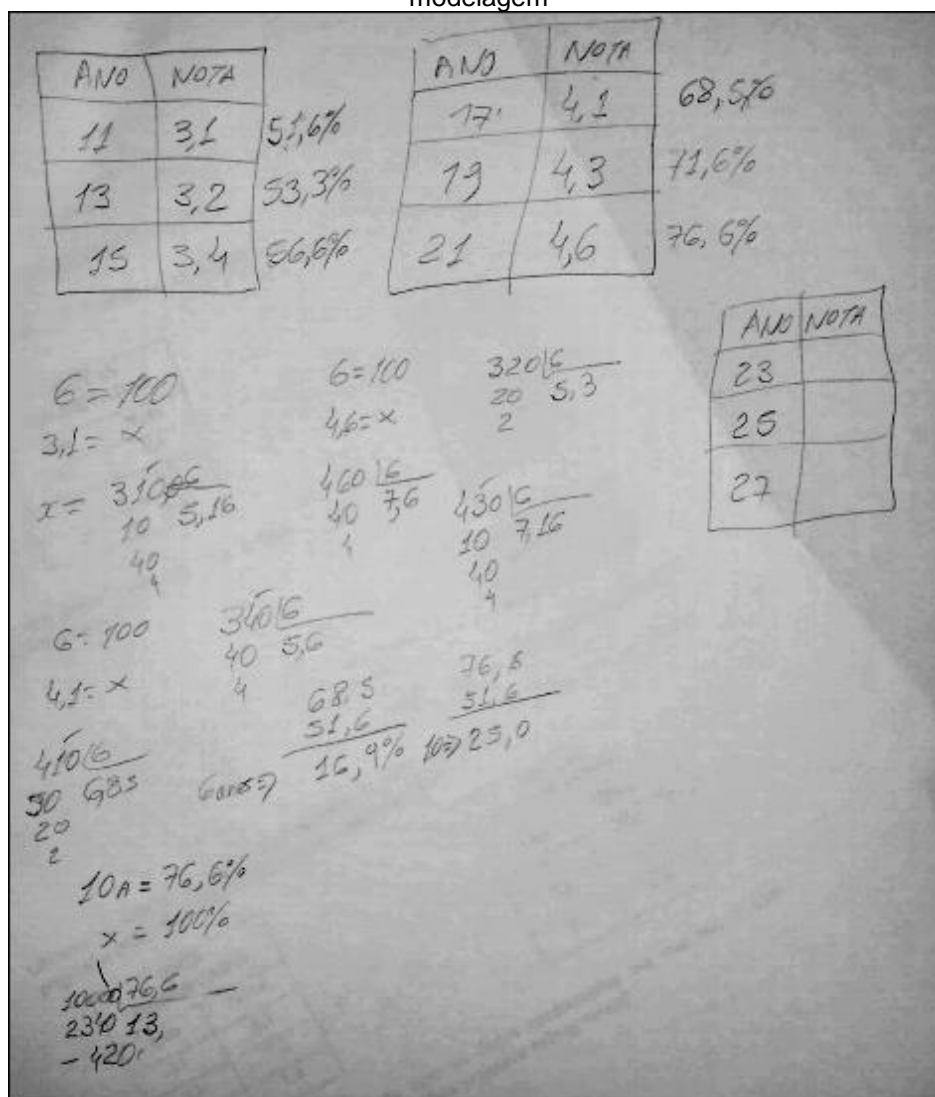 modelagem
ANO NOTA
11 3,1 51,6%
13 3,2 53,3%
15 3,4 56,6%
ANO NOTA
17 4,1 68,5%
19 4,3 71,6%
21 4,6 76,6%
ANO NOTA
23
25
27
6 = 100
3,1 = x
x = 310 6
10 5,16
40
4
6 = 100
4,6 = x
460 6
40 7,6
4
320 6
20 5,3
2
430 6
10 7,16
40
4
6 = 100
4,1 = x
410 6
50 6,85
20
2
340 6
40 5,6
4
68,5
51,6
6 anos => 16,9%
76,6
51,6
10 => 25,0
10A = 76,6%
x = 100%
76,6
2340 13,
- 420